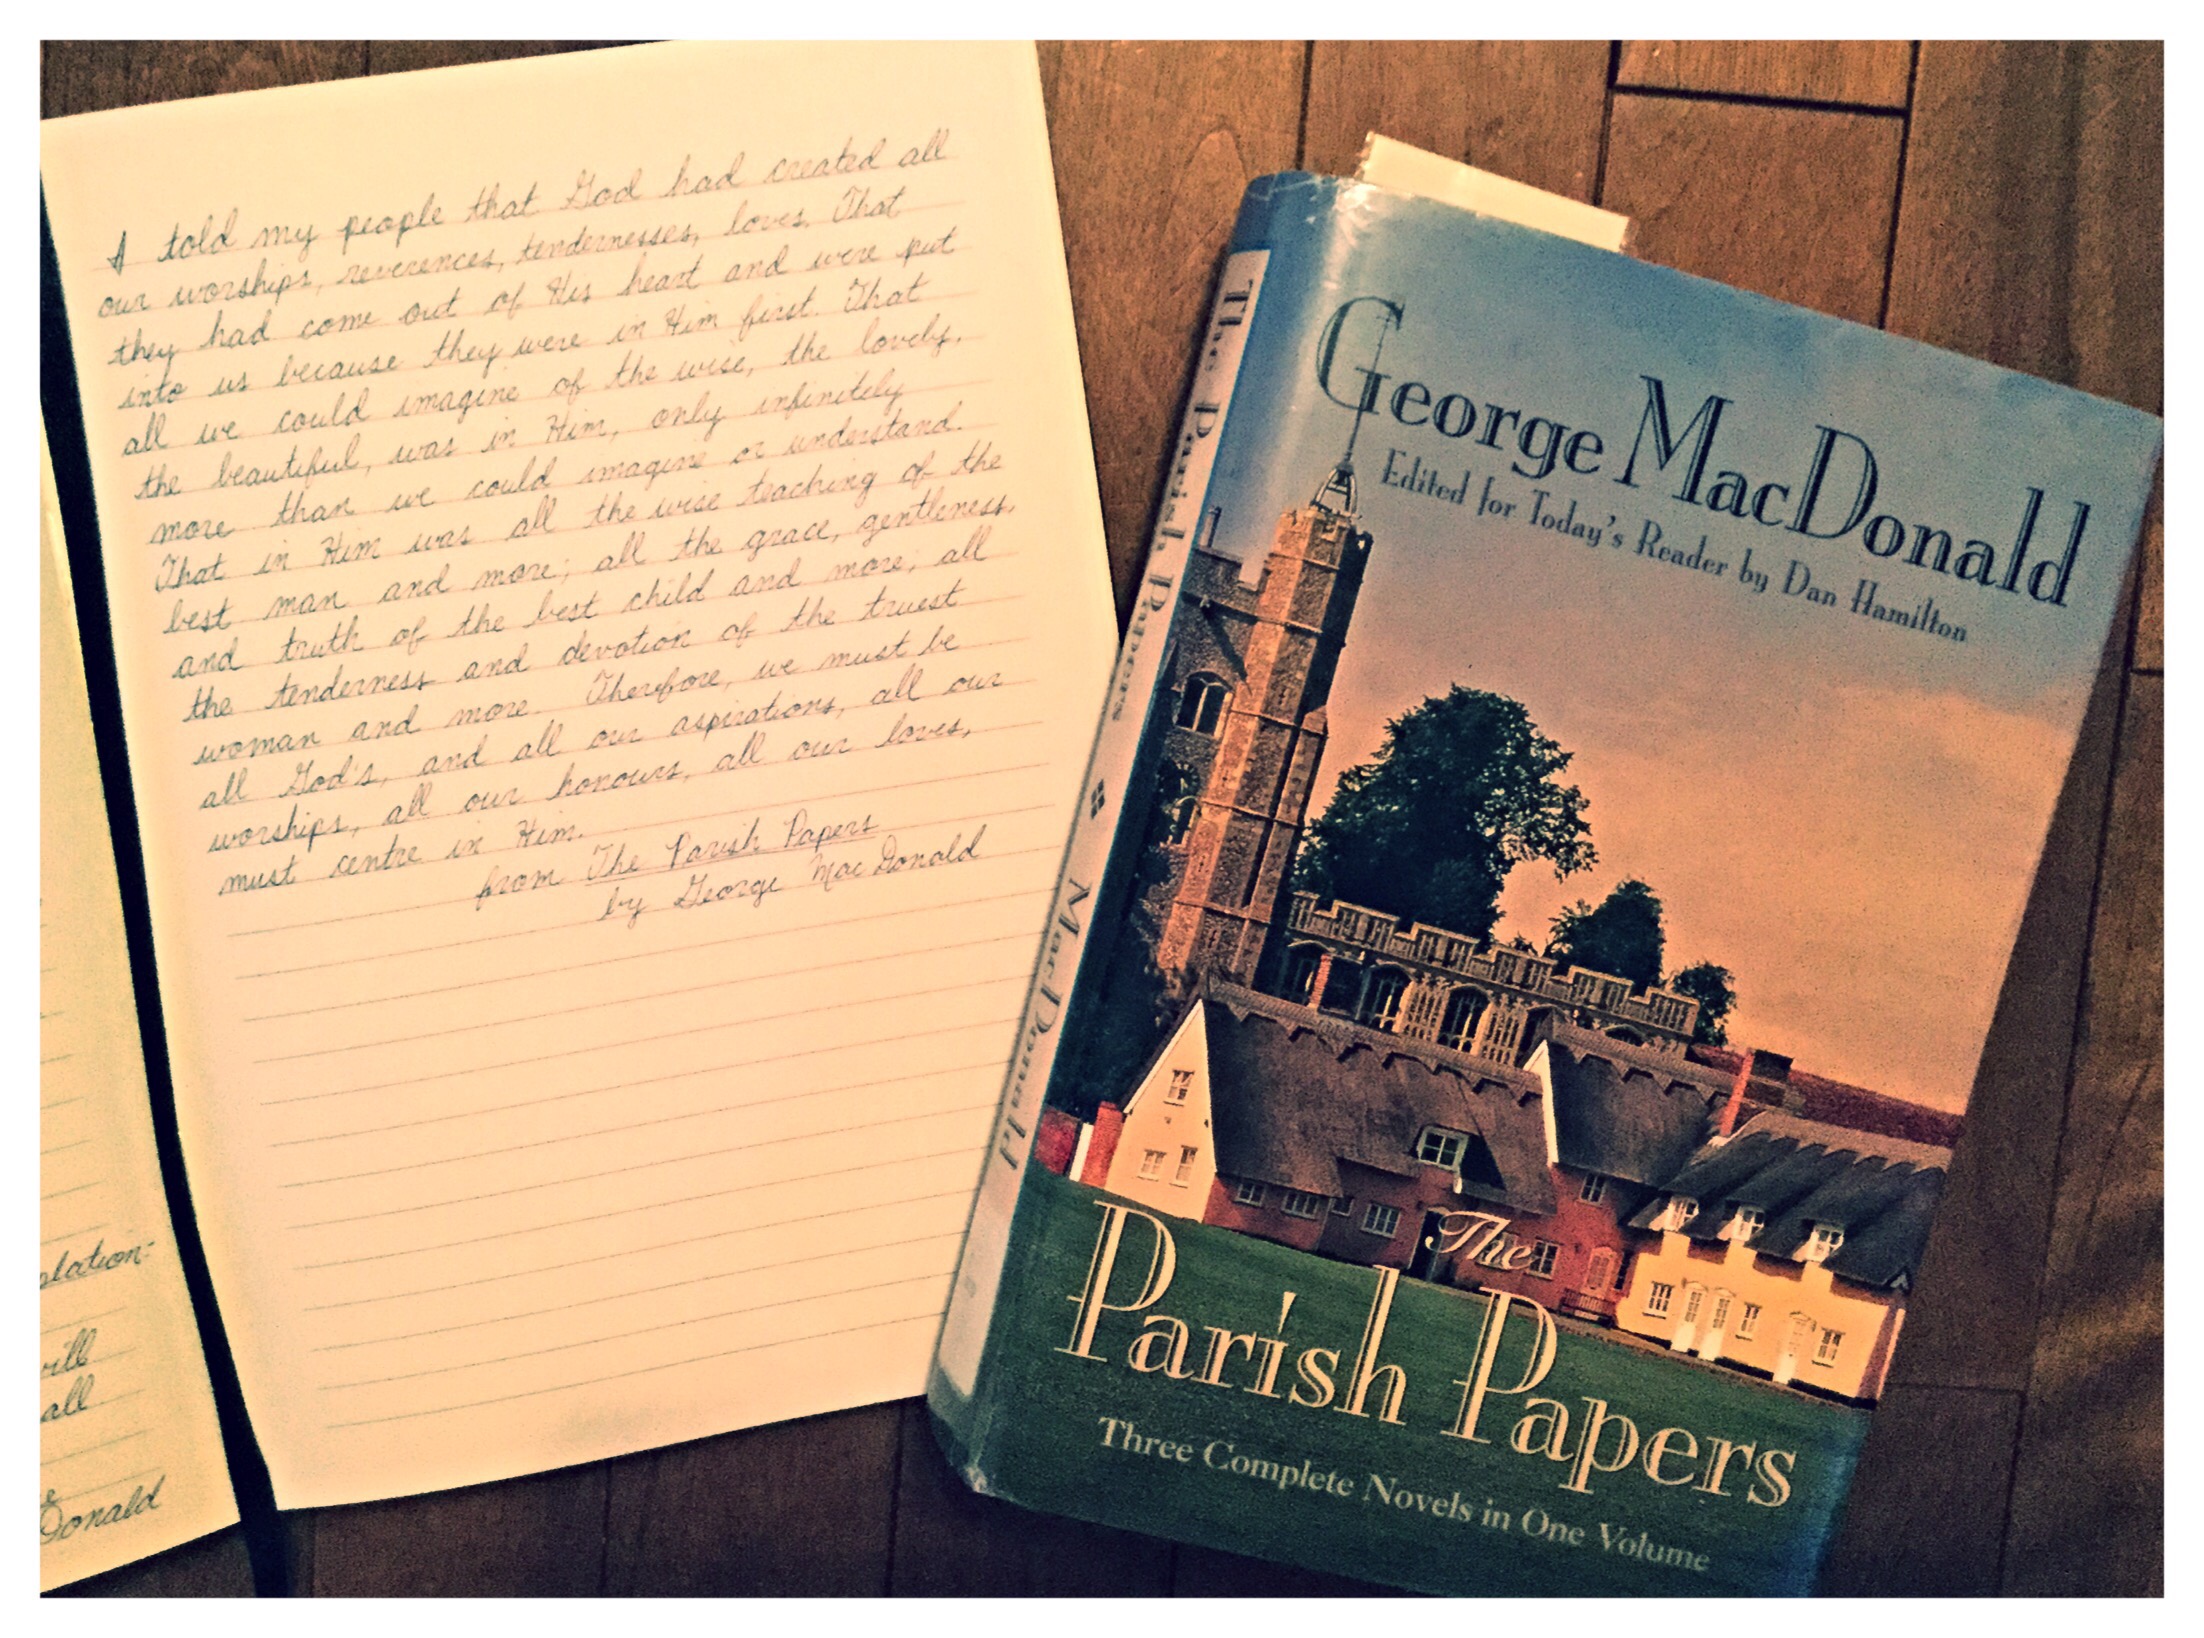 I told my people that God had created all
our worships, reverences, tendernesses, loves. That
they had come out of His heart and were put
into us because they were in Him first. That
all we could imagine of the wise, the lovely,
the beautiful, was in Him, only infinitely
more than we could imagine or understand.
That in Him was all the wise teaching of the
best man and more; all the grace, gentleness,
and truth of the best child and more; all
the tenderness and devotion of the truest
woman and more. Therefore, we must be
all God's, and all our aspirations, all our
worships, all our honours, all our loves,
must centre in Him.
from The Parish Papers
by George MacDonald
lation-
will
all
Donald
The Parish Papers MacDonald
George MacDonald
Edited for Today's Reader by Dan Hamilton
The
Parish Papers
Three Complete Novels in One Volume